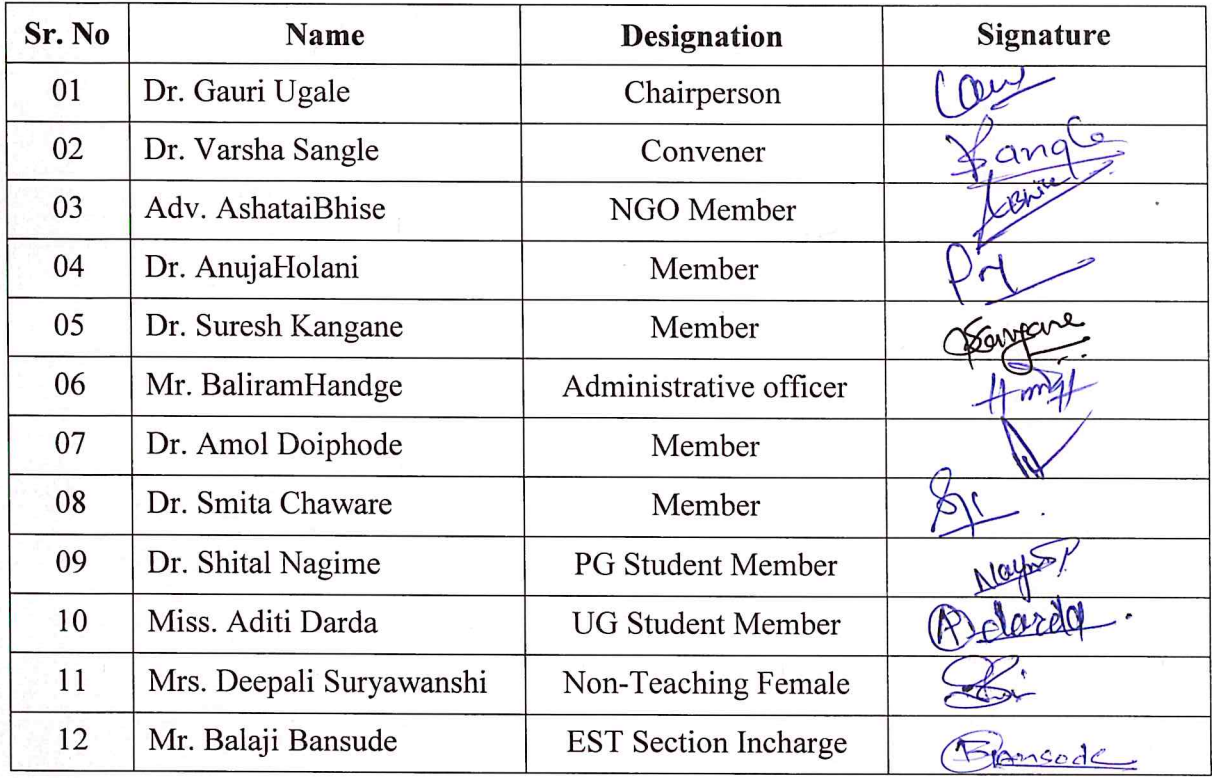 Sr. No Name Designation Signature
01 Dr. Gauri Ugale Chairperson
02 Dr. Varsha Sangle Convener Sangle
03 Adv. AshataiBhise NGO Member ABhise
04 Dr. AnujaHolani Member
05 Dr. Suresh Kangane Member SKangane
06 Mr. BaliramHandge Administrative officer
07 Dr. Amol Doiphode Member
08 Dr. Smita Chaware Member
09 Dr. Shital Nagime PG Student Member
10 Miss. Aditi Darda UG Student Member A darda.
11 Mrs. Deepali Suryawanshi Non-Teaching Female
12 Mr. Balaji Bansude EST Section Incharge Bansode